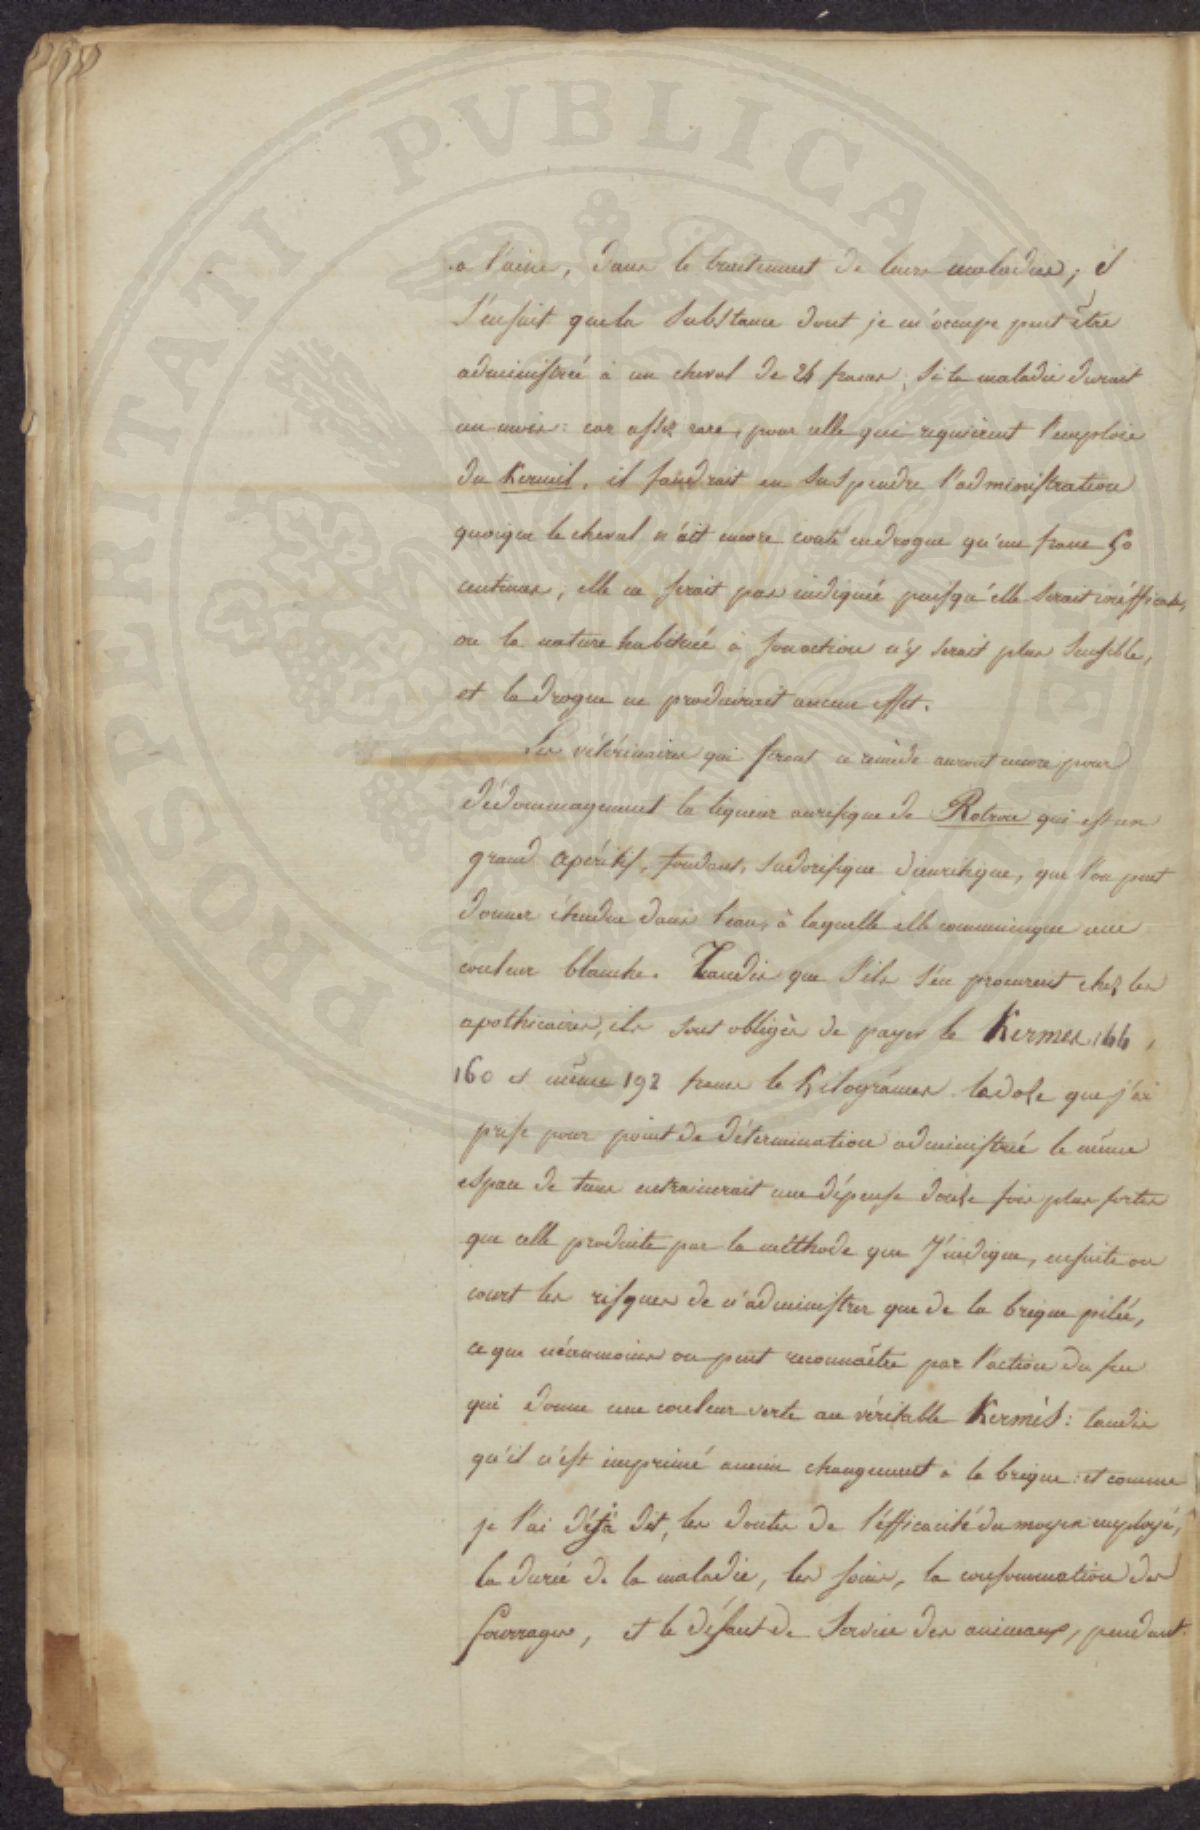 a l'aine, dans le traitement de leurs maladies; il
s'ensuit que la substance dont je m'occupe peut être
administrée à un cheval de 24 francs; si la maladie durait
un mois: car assez rare, pour celle qui requièrent l'emploie
du Kermil, il faudrait en suspendre l'administration
quoique le cheval n'ait encore couté en drogue qu'un franc 50
centimes, elle ne serait pas indiquée puisqu'elle serait inéfficace,
ou la nature habituée à son action n'y serait plus sensible,
et la drogue ne produirait aucun effet.
Les vétérinaires qui feront ce remède auront encore pour
dédommagement la liqueur aurifique de Rotrou qui est un
grand apéritif, fondant, sudorifique diurétique, que l'on peut
donner étendue dans l'eau, à laquelle elle communique une
couleur blanche. Tandis que s'ils s'en procurent chez les
apothicaires, ils sont obligés de payer le Kermes 144,
160 et même 192 francs le Kilogrames. la dose que j'ai
prise pour point de détermination administrée le même
espace de tems entrainerait une dépense douze fois plus fortes
que celle produite par la méthode que j'indique, ensuite on
court les risques de n'administrer que de la brique pilée,
ce que néanmoins on peut reconnaître par l'action du feu
qui donne une couleur verte au véritable Kermès: tandis
qu'il n'est imprimé aucun changement à la brique: et comme
je l'ai déjà dit, les doutes de l'éfficacité du moyen employé,
la durée de la maladie, les soins, la consommation des
fourrages, et le défaut de service des animaux, pendant
PROSPERITATI PUBLICAE